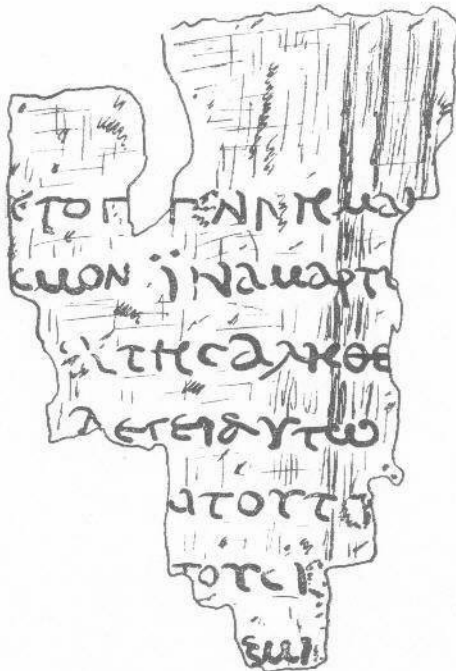 τογ γενημαι
σμον ϊνα μαρτυ
κ της αληθε
λεγει αυτω
ιτουτο
τους ι
εμι